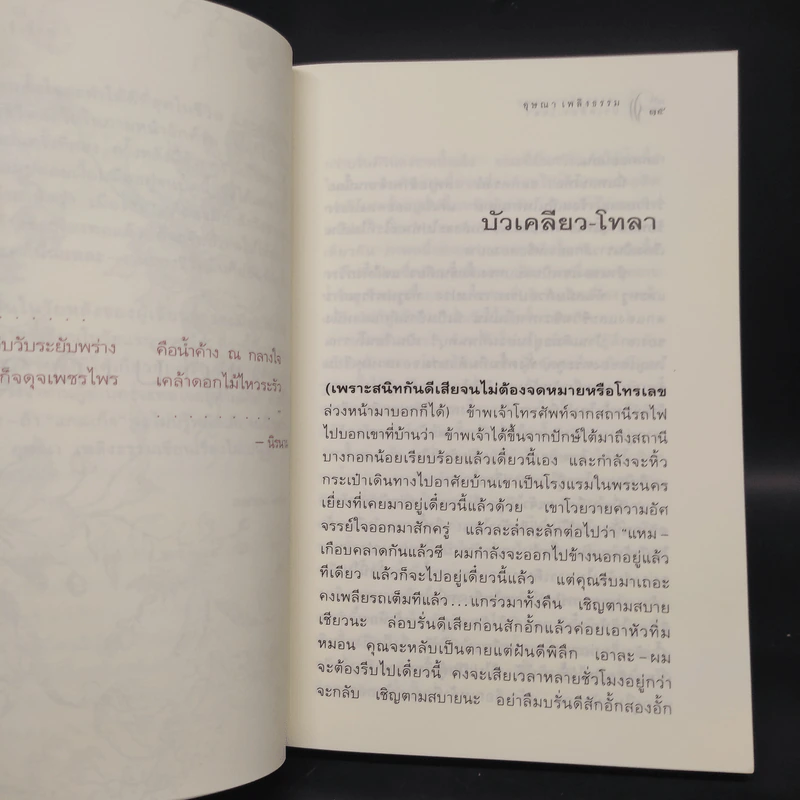 บวับระยับพร่าง คือน้ำค้าง ณ กลางใจ
ก็จดุจเพชรไพร เคล้าดอกไม้ไหวระรัว
. . . . . . . . . "
อุษณา เพลิงธรรม
๗๙
บัวเคลียว-โทลา
(เพราะสนิทกันดีเสียจนไม่ต้องจดหมายหรือโทรเลข
ล่วงหน้ามาบอกก็ได้) ข้าพเจ้าโทรศัพท์จากสถานีรถไฟ
ไปบอกเขาที่บ้านว่า ข้าพเจ้าได้ขึ้นจากปักษ์ใต้มาถึงสถานี
บางกอกน้อยเรียบร้อยแล้วเดี๋ยวนี้เอง และกำลังจะหิ้ว
กระเป๋าเดินทางไปอาศัยบ้านเขาเป็นโรงแรมในพระนคร
เยี่ยงที่เคยมาอยู่เดี๋ยวนี้แล้วด้วย เขาโวยวายความอัศ
จรรย์ใจออกมาสักครู่ แล้วละล่ำละลักต่อไปว่า "แหม –
เกือบคลาดกันแล้วซี ผมกำลังจะออกไปข้างนอกอยู่แล้ว
ทีเดียว แล้วก็จะไปอยู่เดี๋ยวนี้แล้ว แต่คุณรีบมาเถอะ
คงเพลียรถเต็มทีแล้ว...แกร่วมาทั้งคืน เชิญตามสบาย
เชียวนะ ล่อบรั่นดีเสียก่อนสักอั้กแล้วค่อยเอาหัวทิ่ม
หมอน คุณจะหลับเป็นตายแต่ฝันดีพิลึก เอาละ – ผม
จะต้องรีบไปเดี๋ยวนี้ คงจะเสียเวลาหลายชั่วโมงอยู่กว่า
จะกลับ เชิญตามสบายนะ อย่าลืมบรั่นดีสักอั้กสองอั้ก